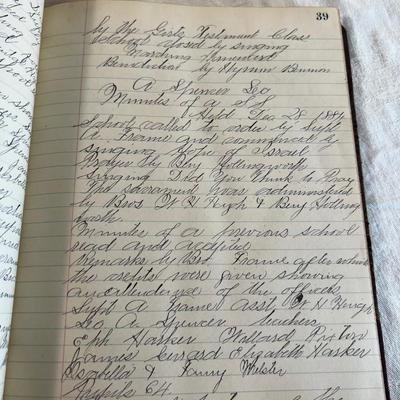 39
by the Girls Testiment Class
School closed by singing
Marching Homeward
Benediction by Hyrum Bennion
A Spencer Sec
Minutes of a S.S.
Held Dec 28 1884
School called to order by Supt
A Frame and commenced by
singing Hope of Israel
Prayer by Benj Hollingworth
singing Did You think to Pray
The sacrament was administered
by Bros W H Hugh & Benj Holling
worth
Minutes of a previous school
read and accepted
Remarks by Bro Frame after which
the credits were given showing
an attendence of the officers
Supt A Frame Asst W H Hough
Sec A Spencer teachers
Eph Harker Willard Pixton
James Gerrard Elizabeth Harker
Isabella & Fanny
Pupils 64